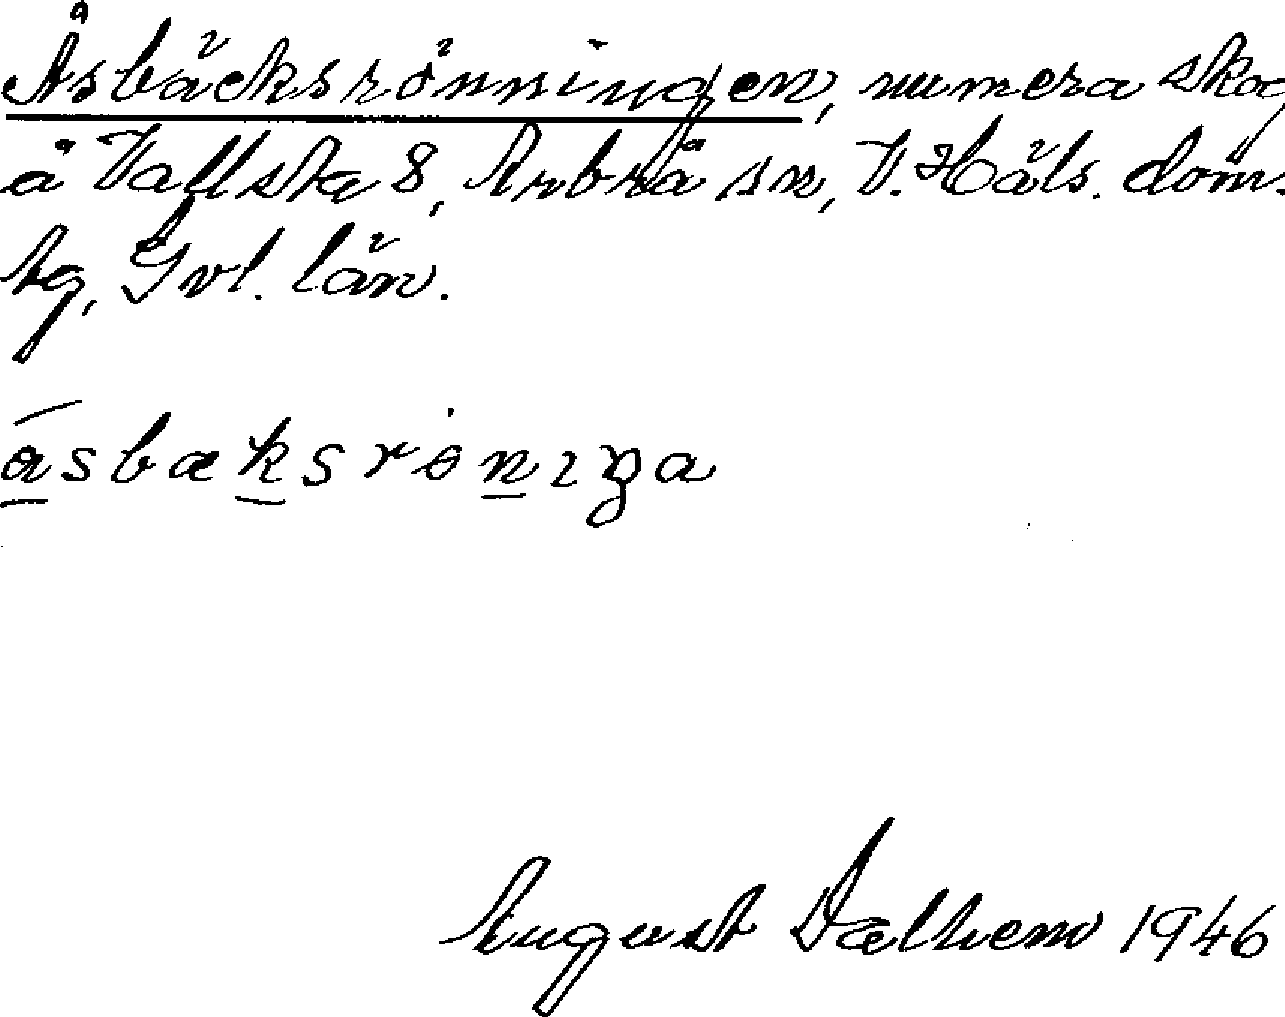 Åsbäcksrönningen, numera skog
å Vallsta 8, Arbrå sn, V. Häls. dom.
tg, Gvl. län.
åsbæksrönıŋa
August Dælhem 1946